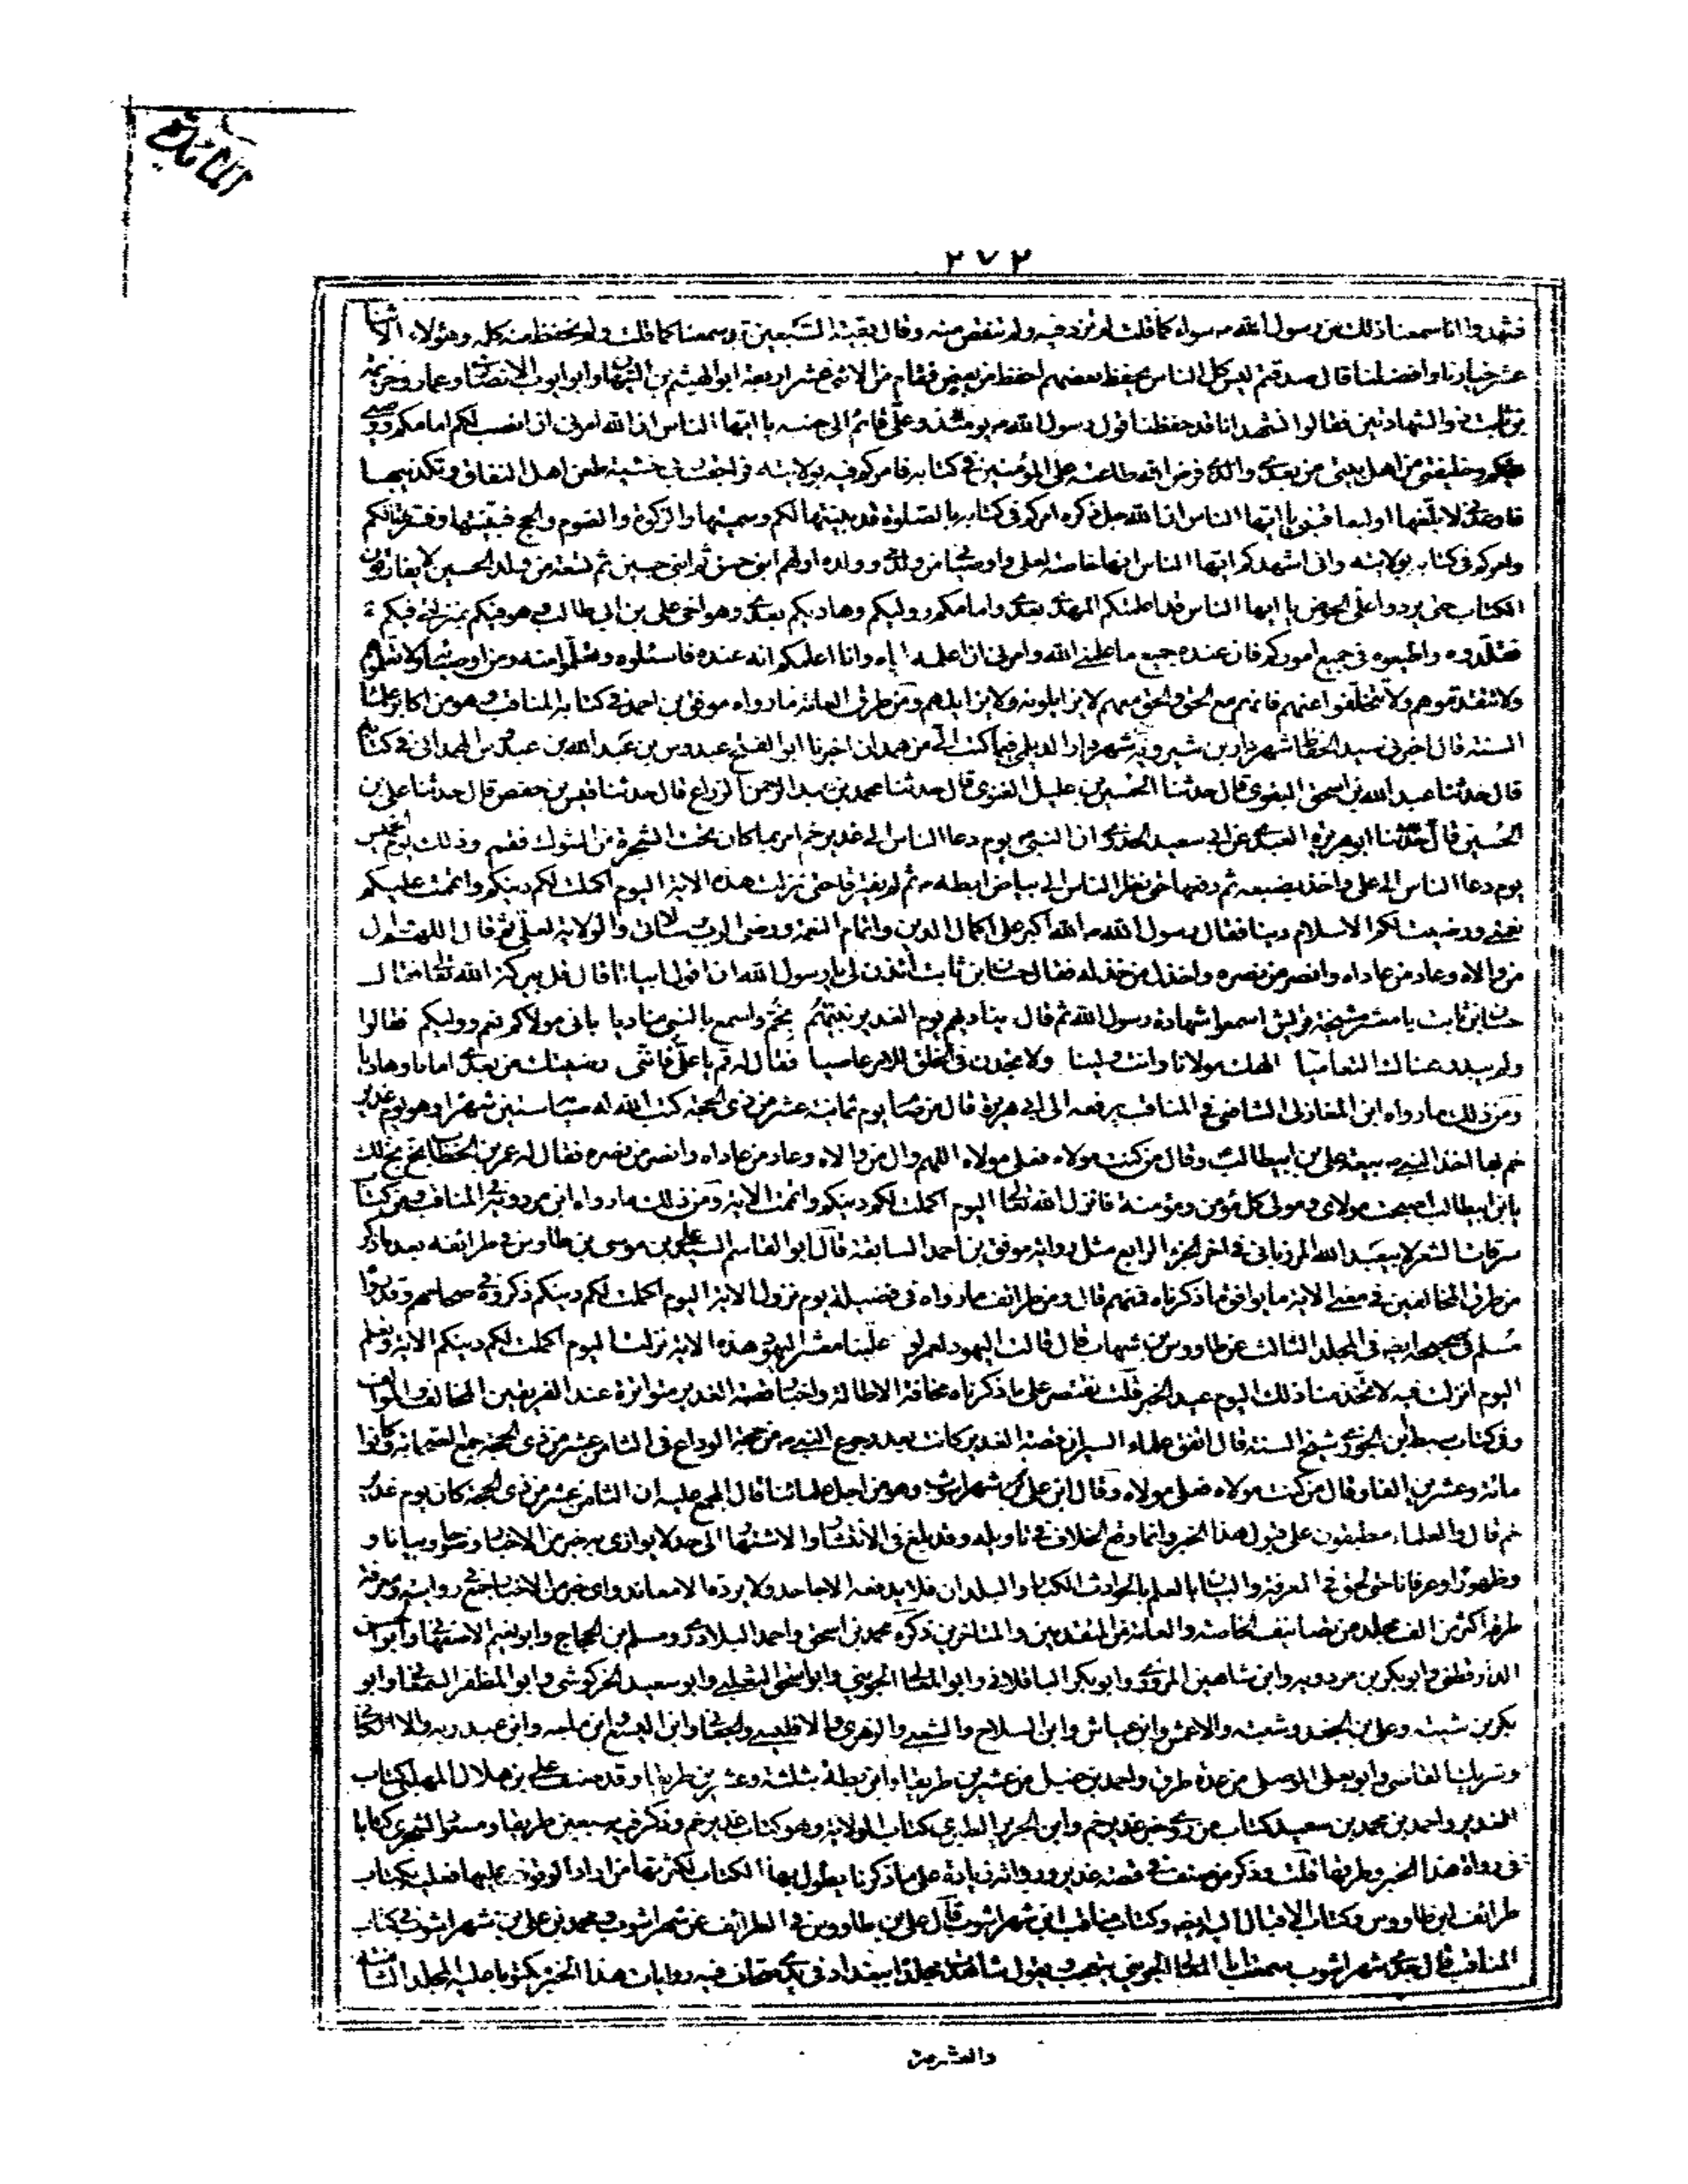 المائدة
٢٧٢
فشهدوا انا سمعنا ذلك من رسول الله ص سواء كما قلت لم نزد فيه ولم ننقص منه وقال بقية السبعين قد سمعنا كما قلت ولم نحفظ منه كله وهؤلاء الاثنا
عشر خيارنا وافضلنا قال صدقتم ليس كل الناس يحفظ بعضهم احفظ من بعض فقام من الاثنى عشر اربعة ابو الهيثم بن التيهان وابو ايوب الانصارى وعمار وخزيمة
بن ثابت ذو الشهادتين فقالوا نشهد انا قد حفظنا قول رسول الله ص يومئذ وعلى قائم الى جنبه يا ايها الناس ان الله امرنى ان انصب لكم امامكم ووصيى
فيكم وخليفتى من اهل بيتى من بعدى والذى فرض الله طاعته على المؤمنين فى كتابه فامركم فيه بولايته فراجعت ربى خشية طعن اهل النفاق وتكذيبهم
فاوعدنى لابلغنها او ليعاقبنى يا ايها الناس ان الله جل ذكره امركم فى كتابه بالصلوة قد بينتها لكم وسميتها والزكوة والصوم والحج فبينتها وفسرتها لكم
وامركم فى كتابه بولايته وانى اشهدكم ايها الناس انها خاصة لعلى واوصيائى من ولدى وولده اولهم ابنى حسن ثم ابنى حسين ثم تسعة من ولد الحسين لا يفارقون
الكتاب حتى يردوا على الحوض يا ايها الناس قد اعلمتكم المهدى بعدى وامامكم ووليكم وهاديكم بعدى وهو اخى على بن ابى طالب وهو فيكم بمنزلتى فيكم
فقلدوه واطيعوه فى جميع اموركم فان عنده جميع ما علمنى الله وامرنى ان اعلمه اياه وانا اعلمكم انه عنده فاسئلوه وتعلموا منه ومن اوصيائه ولا تعلموهم
ولا تتقدموهم ولا تتخلفوا عنهم فانهم مع الحق والحق معهم لا يزايلونه ولا يزايلهم ومن طريق العامة ما رواه موفق بن احمد فى كتابه المناقب وهو من اكابر علماء
السنة قال اخبرنى سيد الحفاظ شهردار بن شيرويه شهردار الديلمى فيما كتب الى من همدان اخبرنا ابو الفتح عبدوس بن عبد الله بن عبدوس الهمدانى فى كتابه
قال حدثنا عبد الله بن اسحق البغوى قال حدثنا الحسين بن عليل الغنوى قال حدثنا محمد بن عبد الرحمن الزراع قال حدثنا قيس بن حفص قال حدثنا على بن
الحسين قال حدثنا ابو هريرة العبدى عن ابى سعيد الخدرى ان النبى يوم دعا الناس الى غدير خم امر بما كان تحت الشجرة من الشوك فقم وذلك يوم الخميس
يوم دعا الناس الى على واخذ بضبعه ثم رفعها حتى نظر الناس الى بياض ابطه ص ثم لم يفترقا حتى نزلت هذه الاية اليوم اكملت لكم دينكم واتممت عليكم
نعمتى ورضيت لكم الاسلام دينا فقال رسول الله ص الله اكبر على اكمال الدين واتمام النعمة ورضى الرب برسالتى والولاية لعلى ثم قال اللهم وال
من والاه وعاد من عاداه وانصر من نصره واخذل من خذله فقال حسان بن ثابت أتئذن لى يا رسول الله ان اقول ابياتا قال قل ببركة الله تعالى فقال
حسان بن ثابت يا معشر مشيخة قريش اسمعوا شهادة رسول الله ثم قال يناديهم يوم الغدير نبيهم بخم واسمع بالنبى مناديا بانى مولاكم نعم ووليكم فقالوا
ولم يبدوا هناك التعاميا الهك مولانا وانت ولينا ولا تجدن فى الخلق للامر عاصيا فقال له قم يا على فاننى رضيتك من بعدى اماما وهاديا
ومن ذلك ما رواه ابن المغازلى الشافعى فى المناقب يرفعه الى ابى هريرة قال من صام يوم ثمانية عشر من ذى الحجة كتب الله له صيام ستين شهرا وهو يوم غدير
خم لما اخذ النبى ص بيعة على بن ابيطالب وقال من كنت مولاه فعلى مولاه اللهم وال من والاه وعاد من عاداه وانصر من نصره فقال له عمر بن الخطاب بخ بخ لك
يابن ابيطالب اصبحت مولاى ومولى كل مؤمن ومؤمنة فانزل الله تعالى اليوم اكملت لكم دينكم واتممت الاية ومن ذلك ما رواه ابن مردويه فى المناقب ومن كتاب
سرقات الشعر لابيعبد الله المرزبانى فى اخر الجزء الرابع مثل رواية موفق بن احمد السابقة قال ابو القاسم السيد على بن موسى بن طاوس فى طرائفه بعد ما ذكر
من طرق المخالفين فى معنى الاية ما يوافق ما ذكرناه فمنهم قال ومن طرائف ما رواه فى فضيلة يوم نزول الاية اليوم اكملت لكم دينكم ذكروه فى صحاحهم وقد روا
مسلم فى صحيحه ايضا فى المجلد الثالث عن طاووس بن شهاب قال قالت اليهود لعمر لو علينا معشر اليهود هذه الاية نزلت اليوم اكملت لكم دينكم الاية ونعلم
اليوم انزلت فيه لاتخذنا ذلك اليوم عيد الخبر قلت نقتصر على ما ذكرناه مخافة الاطالة واخبار قصة الغدير متواترة عند الفريقين المخالف والموالف
وفى كتاب سبط ابن الجوزى شيخ السنة قال اتفق علماء السير ان قصة الغدير كانت بعد رجوع النبى ص من حجة الوداع فى الثامن عشر من ذى الحجة جمع الصحابة وكانوا
مائة وعشرين الفا وقال من كنت مولاه فعلى مولاه وقال ابن على بن شهراشوب وهو من اجل علمائنا قال المجمع عليه ان الثامن عشر من ذى الحجة كان يوم غدير
خم قال والعلماء مطبقون على قبول هذا الخبر وانما وقع الخلاف فى تاويله وقد بلغ فى الانتشار والاشتهار الى حد لا يوازى به خبر من الاخبار وضوحا وبيانا و
وظهورا وعرفانا حتى لحق فى المعرفة والبيان بالعلم بالحوادث الكبار والبلدان فلا يدفعه الا جاحد ولا يرده الا معاند واى خبر من الاخبار اجتمع فى روايته ومعرفة
طرقه اكثر من الف مجلد من تصانيف الخاصة والعامة من المتقدمين والمتاخرين ذكره محمد بن اسحق واحمد البلاذرى ومسلم بن الحجاج وابو نعيم الاصفهانى وابو الحسن
الدارقطنى وابو بكر بن مردويه وابن شاهين المروزى وابو بكر الباقلانى وابو المعالى الجوينى وابو اسحق الثعلبى وابو سعيد الخركوشى وابو المظفر السمعانى وابو
بكر بن شيبة وعلى بن الجعد وشعبة والاعمش وابن عياش وابن السلاح والشعبى والزهرى والاقليسى والجعابى وابن البيع ابن ماجه وابن عبد ربه والالكانى
وشريك القاضى وابو يعلى الموصلى من عدة طرق واحمد بن حنبل من عشرين طريقا وابن بطة بثلثة وعشرين طريقا وقد صنف على بن هلال المهلبى كتاب
الغدير واحمد بن محمد بن سعيد كتاب من روى خبر غدير خم وابن الجرير الطبرى كتاب الولاية وهو كتاب غدير خم وذكر فيه سبعين طريقا ومسعود الشجرى كتابا
فى رواة هذا الخبر وطريقها قلت وذكر من صنف فى قصة غدير ورواته زيادة على ما ذكرنا يطول بها الكتاب لكثرتها من اراد الوقوف عليها فعليه بكتاب
طرائف ابن طاووس وكتاب الاقبال له ايضا وكتاب مناقب ابن شهراشوب قال على بن طاووس فى الطرائف عن شهراشوب محمد بن على بن شهراشوب فى كتاب
المناقب قال جدى شهراشوب سمعت ابا المعالى الجوينى يتعجب ويقول شاهدت مجلدا ببغداد فى يدى صحاف فيه روايات هذا الخبر مكتوبا عليه المجلد الثامنة
والعشرين